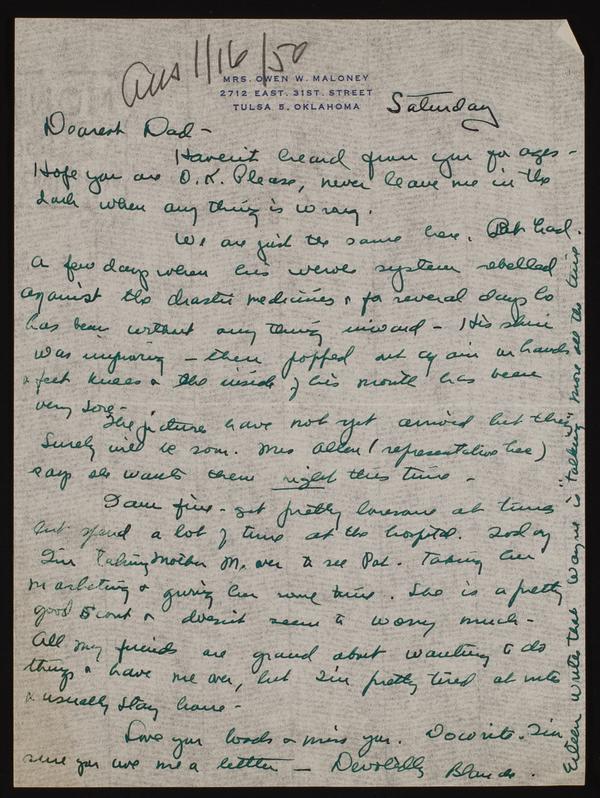 Ans 1/16/50
MRS. OWEN W. MALONEY
2712 EAST. 31ST. STREET
TULSA 5, OKLAHOMA
Saturday
Dearest Dad -
Haven't heard from you for ages -
Hope you are O.K. Please, never leave me in the
dark when any thing is wrong.
We are just the same here. Pat had
a few days when his nerve system rebelled
against the drastic medicines & for several days he
has been without any thing inward - His skin
was improving - then popped out again on hands
& feet knees & the inside of his mouth has been
very sore -
The pictures have not yet arrived but they
surely will be soon. Mrs Allen (representative here)
says she wants them right this time -
I am fine - get pretty lonesome at times
but spend a lot of time at the hospital. Today
I'm taking Mother M. over to see Pat. Taking her
marketing & giving her some time. She is a pretty
good scout & doesn't seem to worry much -
All my friends are grand about wanting to do
things & have me over, but I'm pretty tired at nite
& usually stay home -
Love you loads & miss you. Do write - I'm
sure you owe me a letter - Devotedly
Eileen writes that Wayne is "talking" more all the time